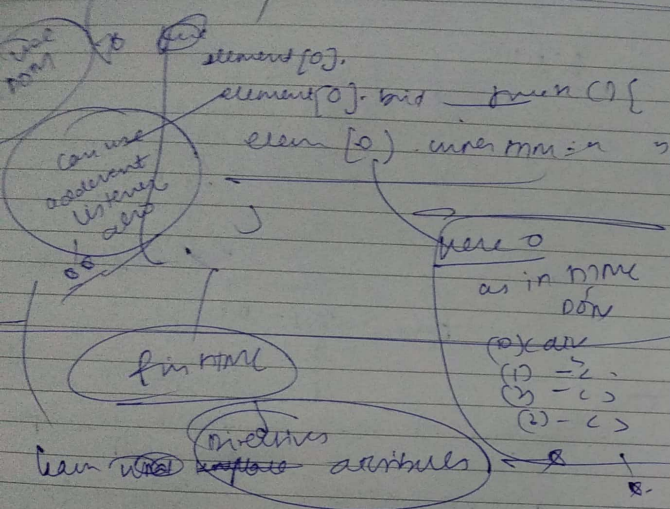 use
DOM
element[0].
element[0]. bind func () {
elem [0]
can use
addevent
listener
also
}
here 0
as in HTML
DOM
(0) < div
(1) - < .
(2) - < >
(2) - < >
HTML
Directives
learn attributes